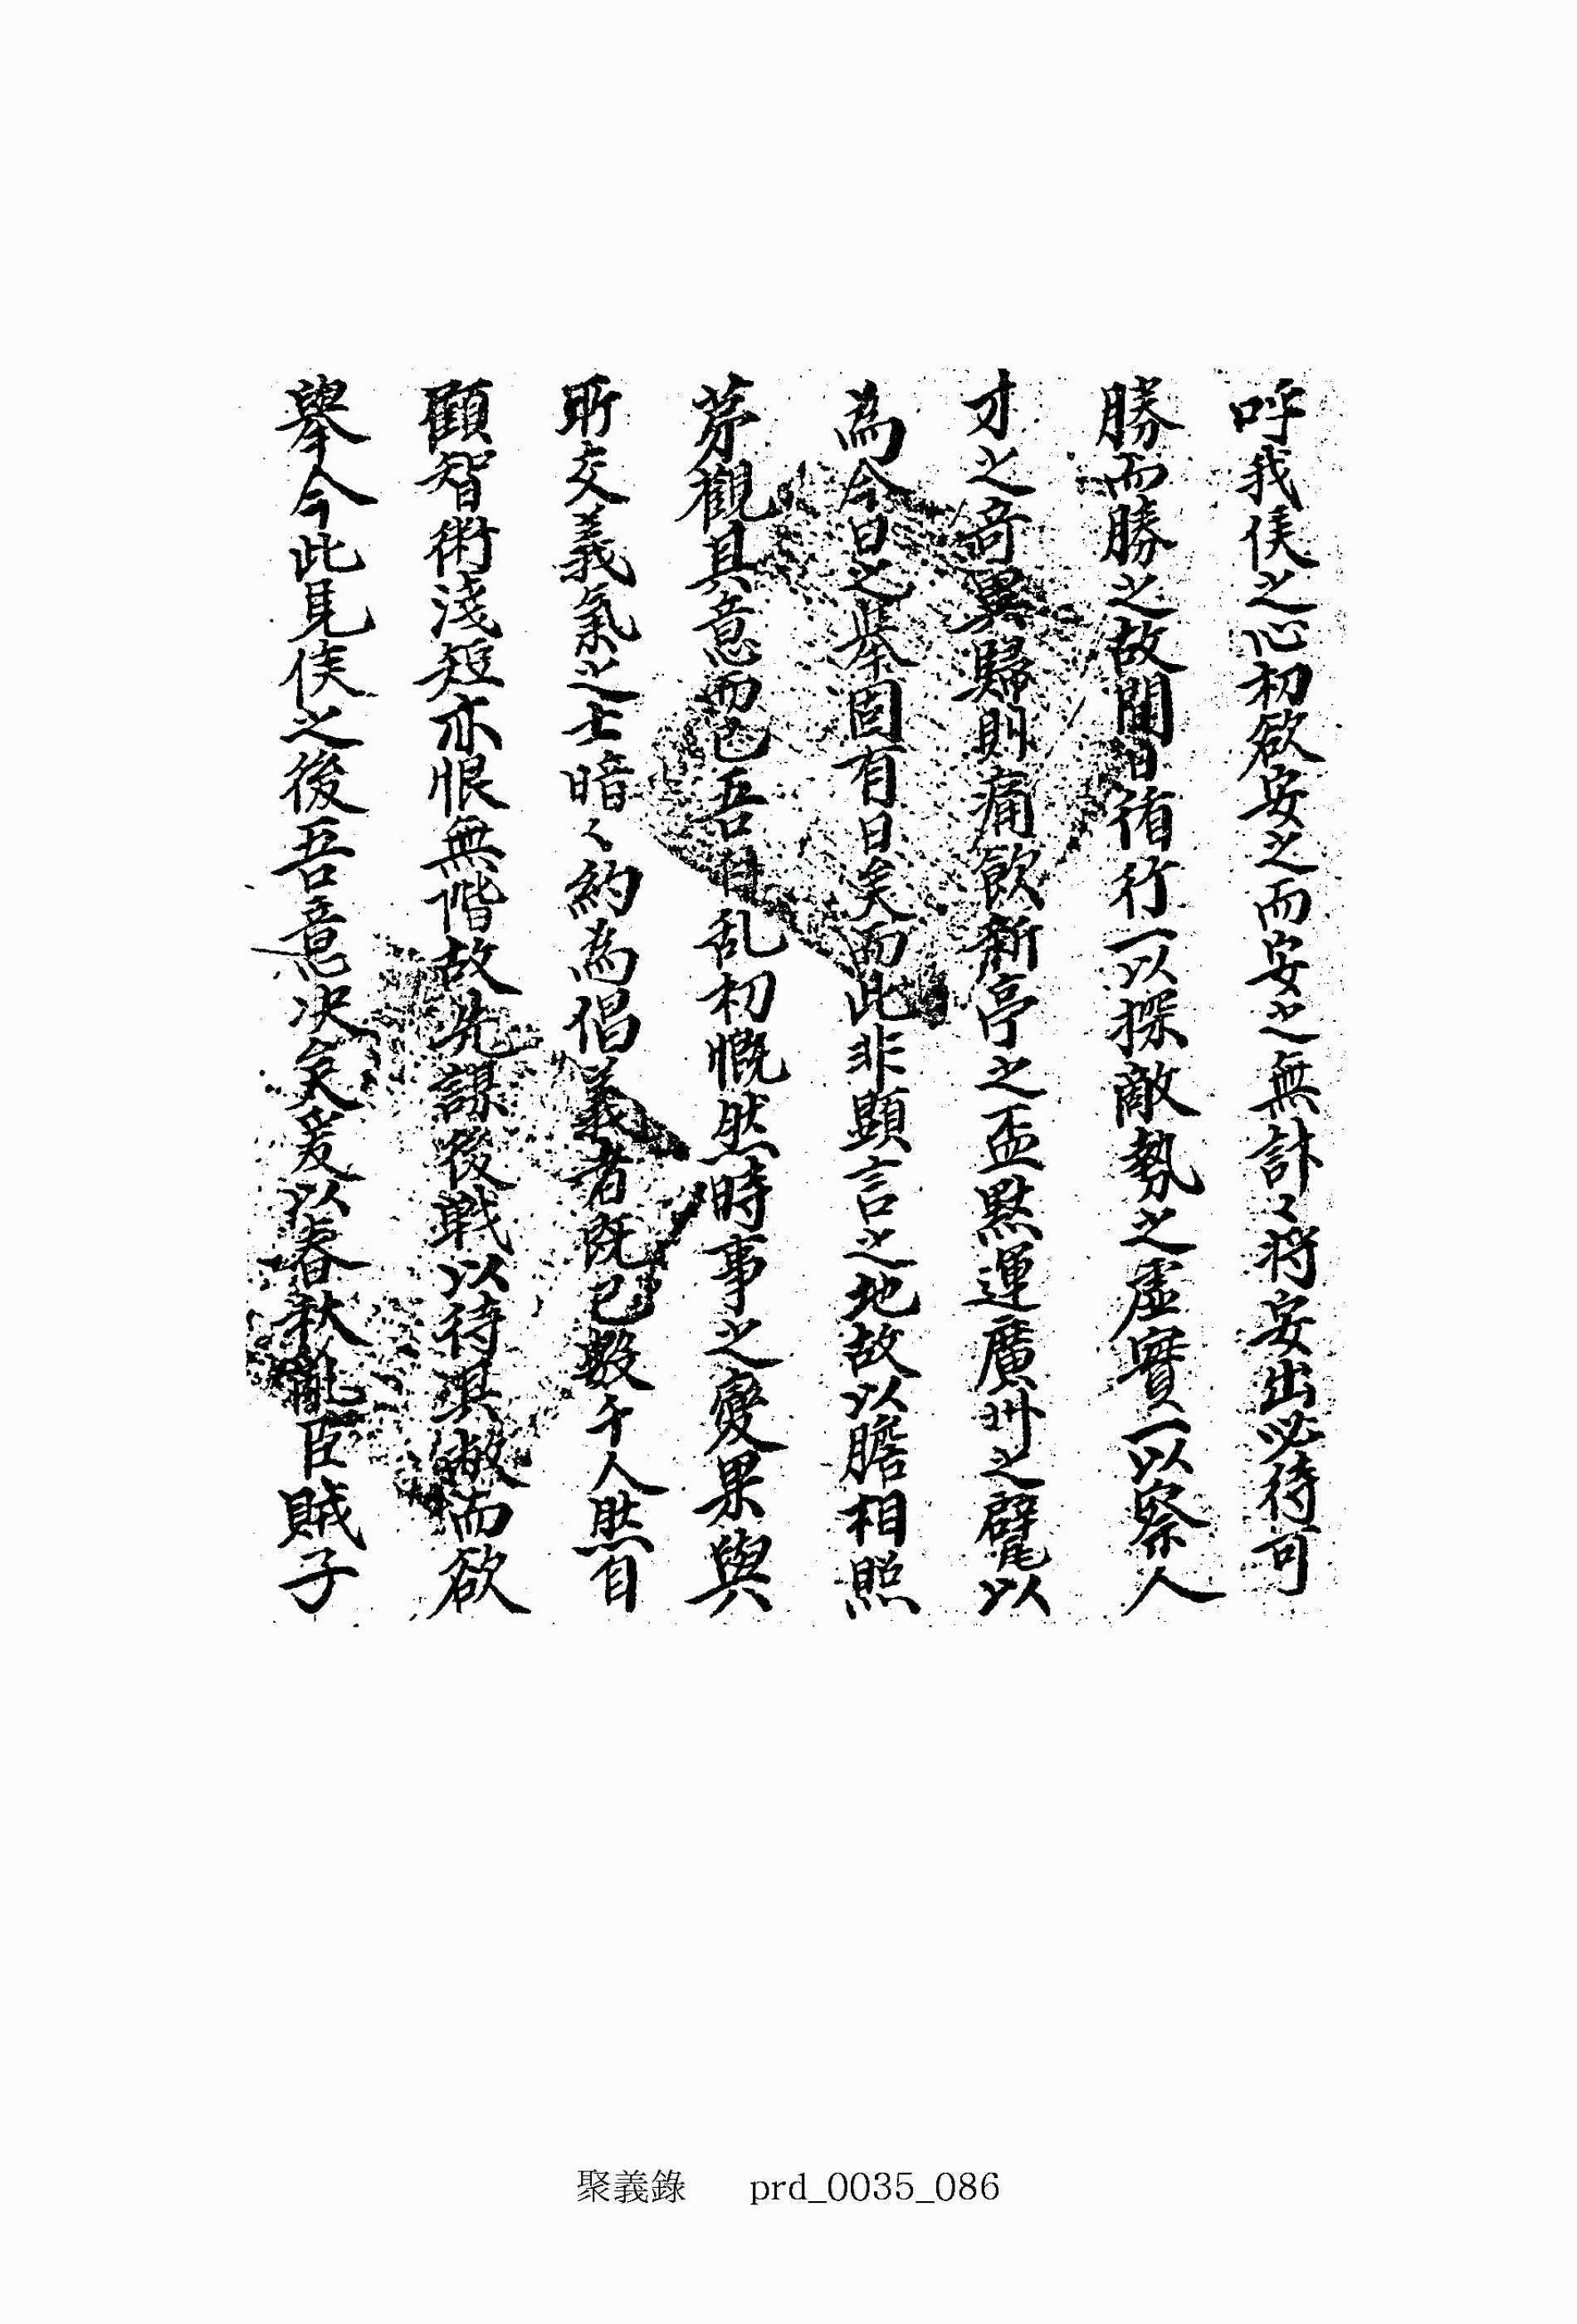 呼我侯之心初欲安之而安之無計々將安出必待可
勝而勝之故間日徃行一以探敵勢之虛實一以察人
才之奇異歸則痛飮新亭之盃黙運廣州之甓以
為今日之擧固有日矣而此非顯言之地故以膽相照
茅觀其意而已吾自乱初慨然時事之變果與
所交義氣之士暗々約為倡義者既已數千人然自
顧智術淺短亦恨無階故先謀後戰以待其敝而欲
擧今此見侯之後吾意决矣爰以春秋亂臣賊子
聚義錄 prd_0035_086